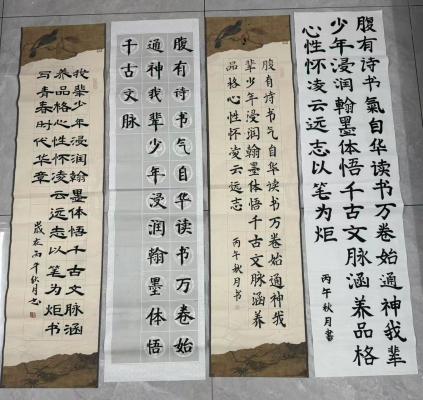 腹有诗书氣自华读书万卷始通神我辈
少年浸润翰墨体悟千古文脉涵养品格
心性怀凌云远志以笔为炬
丙午秋月書
腹有诗书气自华读书万卷始通神我
辈少年浸润翰墨体悟千古文脉涵养
品格心性怀凌云远志
丙午秋月书
腹有诗书气自华读书万卷始
通神我辈少年浸润翰墨体悟
千古文脉
我辈少年浸润翰墨体悟千古文脉涵
养品格心性怀凌云远志以笔为炬书
写青春时代华章
歲在丙午秋月